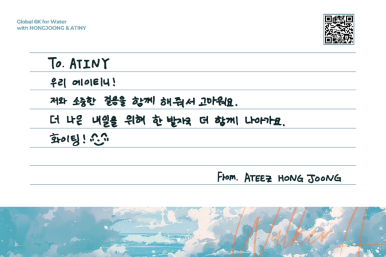 Global 6K for Water
with HONGJOONG & ATINY
To. ATINY
우리 에이티니!
저와 소중한 걸음을 함께 해줘서 고마워요.
더 나은 내일을 위해 한 발자국 더 함께 나아가요.
화이팅!
From. ATEEZ HONG JOONG